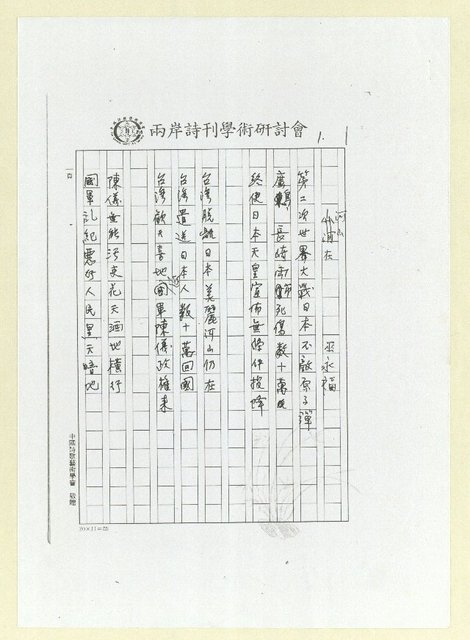 兩岸詩刊學術研討會
1.
河山 在 巫永福
第二次世界大戰日本不敵原子彈
廣 長崎 死傷數十萬
終使日本天皇宣佈無條件投降
台灣脫離日本美麗河山仍在
台灣遣送日本人數十萬回國
台灣歡天喜地國軍陳儀政權來
陳儀無能污吏花天酒地橫行
國軍亂紀惡 人民黑天暗地
中國詩歌藝術學會 敬贈